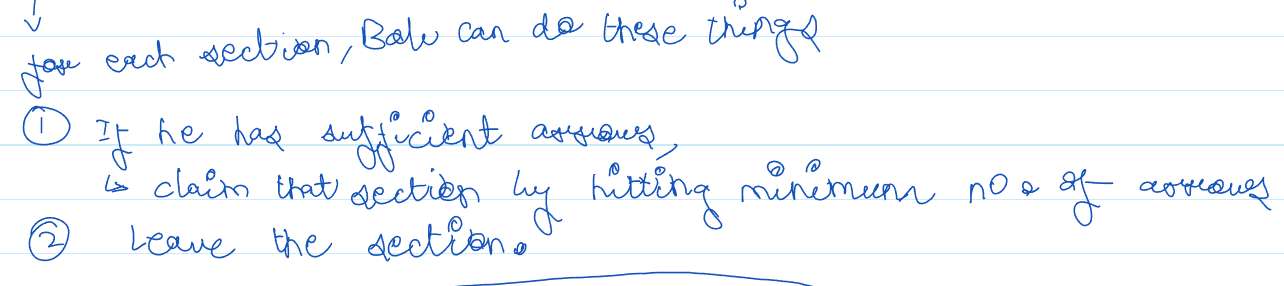 for each section, Bob can do these things
① If he has sufficient arrows,
↳ claim that section by hitting minimum no. of arrows
② Leave the section.